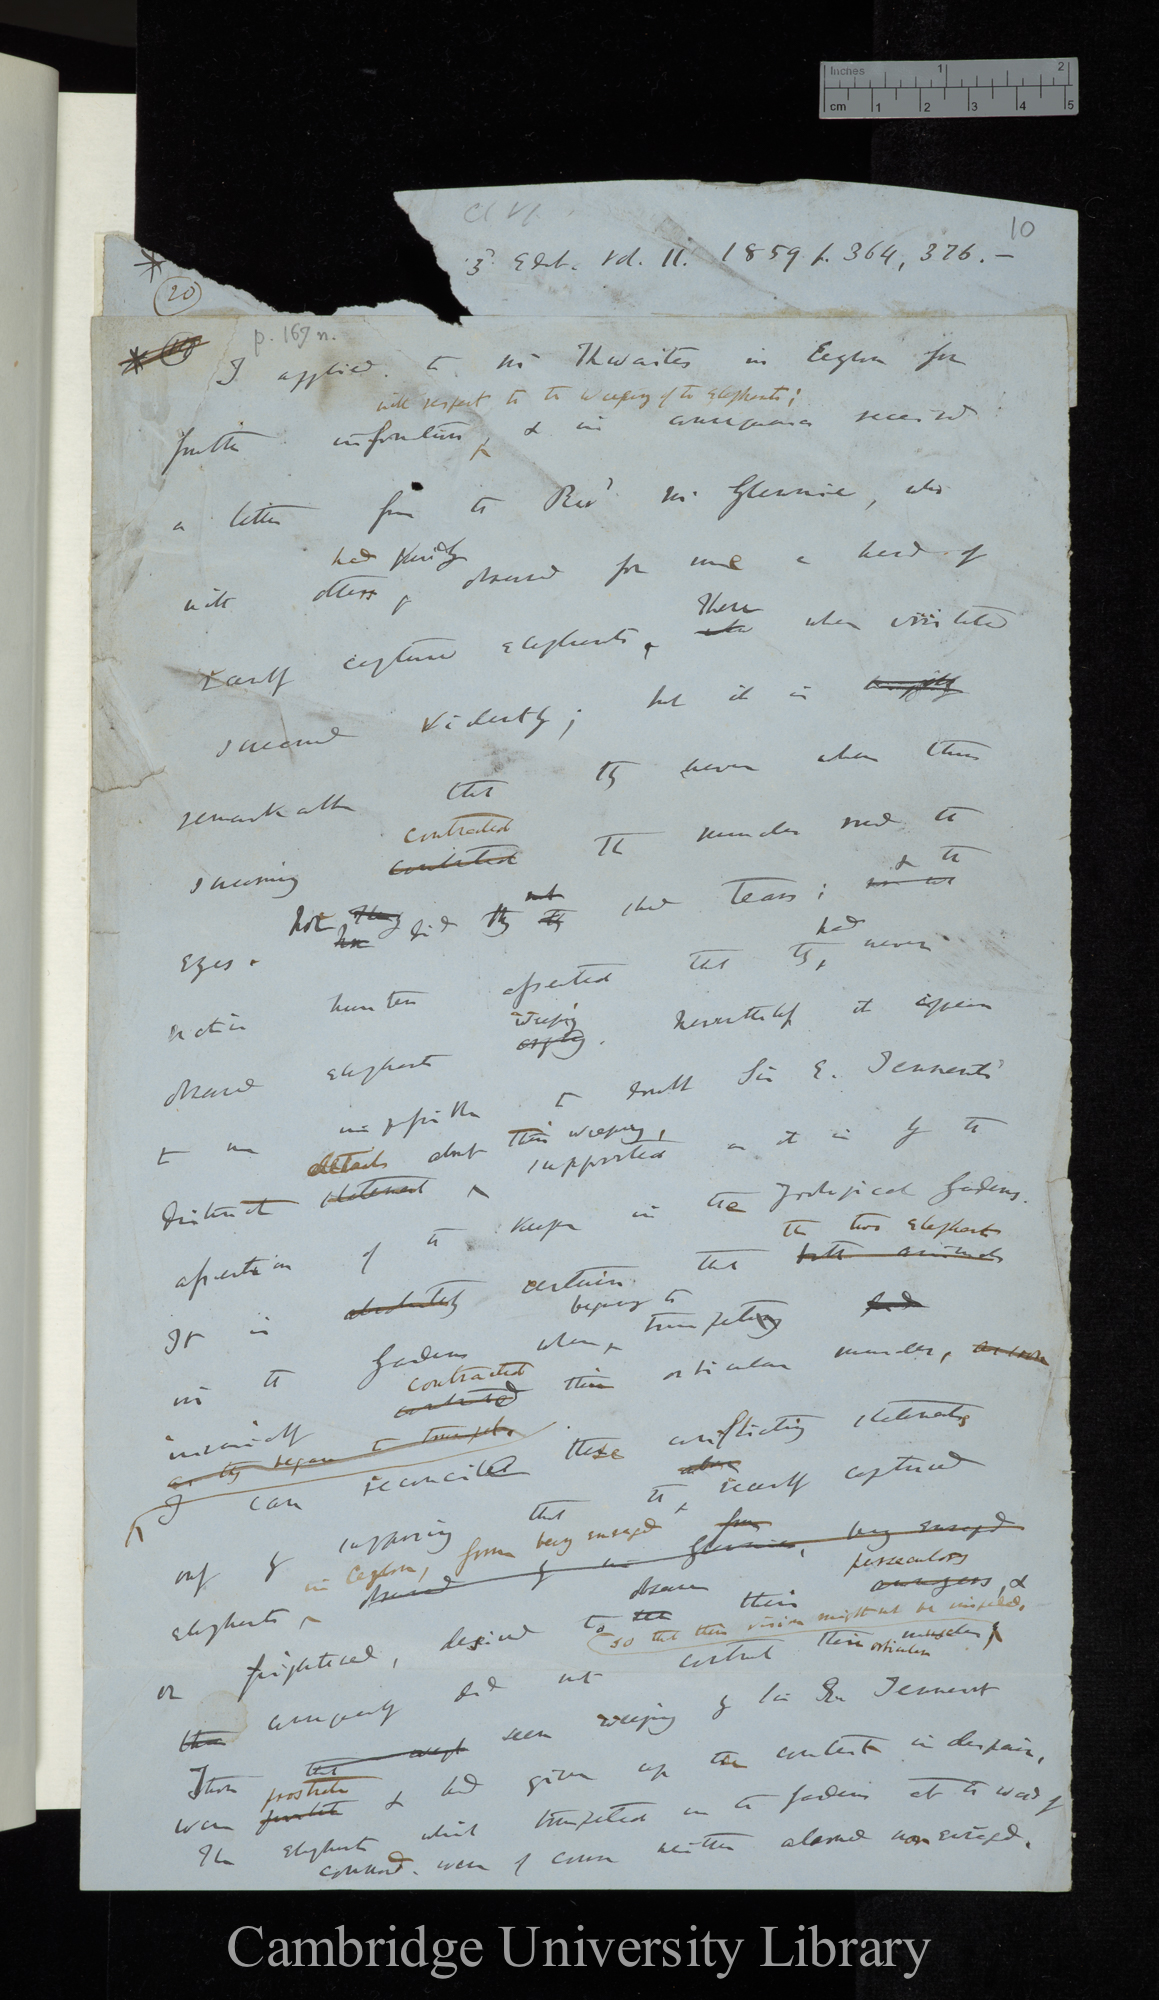 Inches 1 2
cm 1 2 3 4 5
10
3d Edit. Vol. II. 1859 p. 364, 376. —
*
20
* p. 167 n.
I applied to Mr Thwaites in Ceylon for
with respect to the weeping of the elephants;
further information, & in consequence received
a letter from the Revd Mr Glennie, who
had kindly
with others, observed for me a herd of
These
recently captured elephants, who when irritated
screamed violently; but it is
remarkable that they never when thus
contracted
screaming contracted the muscles round the
& the
eyes. Nor did they shed tears;
had
native hunters asserted that they never
weeping
observed elephants crying. Nevertheless it appears
to me impossible to doubt Sir E. Tennent's
details about their weeping,
distinct statement supported as it is by the
assertion of the keeper in the Zoological Gardens.
the two elephants
It is absolutely certain that both animals
begining to
in the Gardens when trumpeting
contracted
invariably their orbicular muscles, as soon
as they began to trumpet.
I can reconcile these conflicting statements
only by supposing that the recently captured
in Ceylon, from being enraged
elephants, observed by Mr Glennie, from being enraged
observe persecutors
or frightened, desired to see their &
so that their vision might not be impeded.
consequently did not contract their orbicular muscles;
Those that wept seen weeping by Sir Em Tennent
prostrate
were & had given up the contest in despair.
The elephants which trumpeted in the Gardens at the word of
command. were of course neither alarmed nor enraged.
Cambridge University Library